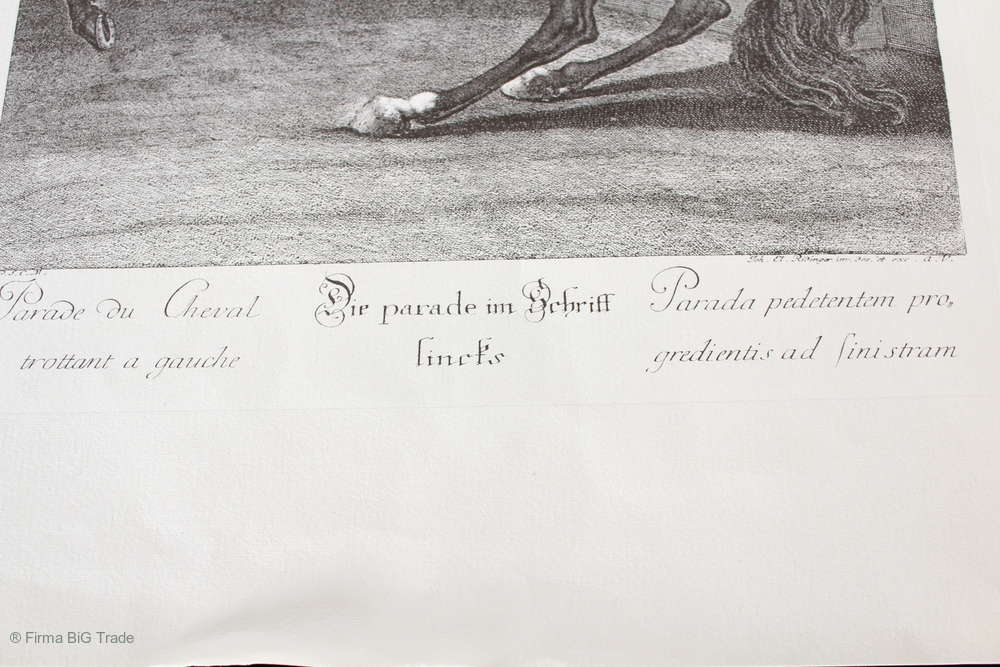 Joh. El. Ridinger inv. del. et exc. A. V.
Parade du Cheval
trottant a gauche
Die parade im Schritt
lincks
Parada pedetentem pro,
gredientis ad sinistram
® Firma BiG Trade